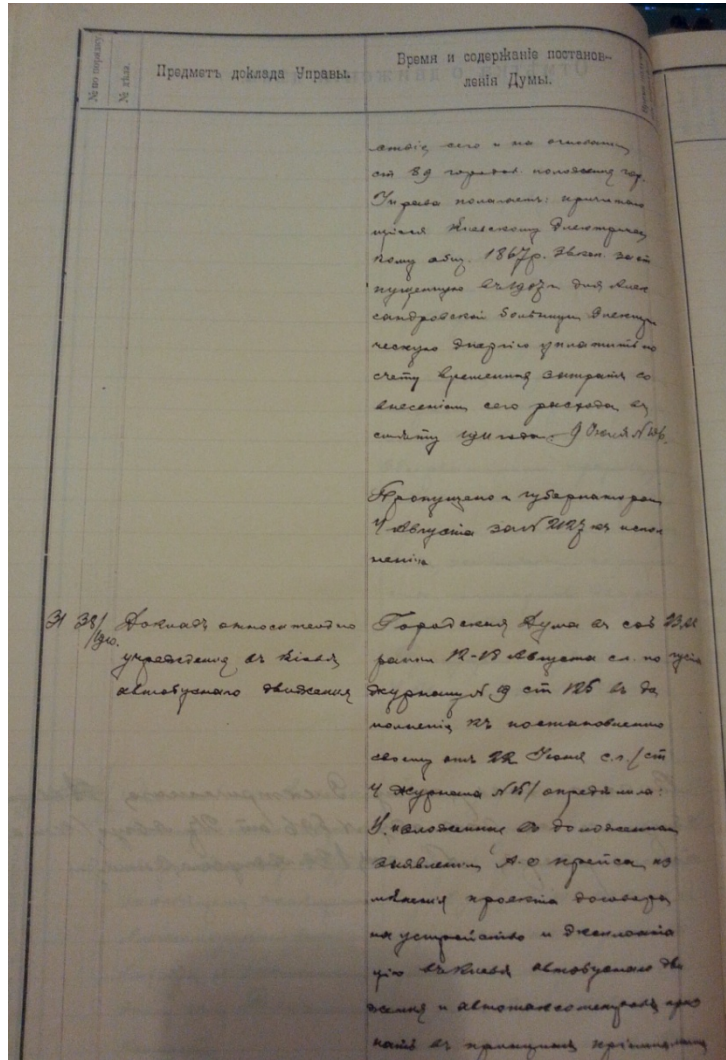 № по порядку
№ дѣла.
Предметъ доклада Управы.
Время и содержаніе постанов-
ленія Думы.
сего и на основаніи
ст 89 городов. положенія гор.
Управа полагаетъ: причитаю
щіеся Кіевскому Электричес
кому общ. 1867 р. за от
пущенную въ 1907 г для Алек
сандровской больницы электри
ческую энергію уплатить по
счету временныхъ затратъ со
внесеніемъ сего расхода въ
смѣту 1911 года.
Пропущено г губернаторомъ
4 Августа за № 2127 къ испол
ненію
31 38/910. Докладъ относительно
учрежденія въ Кіевѣ
автобуснаго движенія
Городская Дума въ соб
раніи 12-18 Августа с.г. по
журналу № 9 ст 125 въ до
полненіе къ постановленію
своему отъ 22 Іюня с.г. /ст
4 журнала № 15/ опредѣлила:
1. изложенныя въ доложенномъ
заявленіи А. О Крейса из
мѣненія проекта договора
на устройство и эксплоата
цію въ Кіевѣ автобуснаго дви
женія и автотаксометровъ приз
нать въ принципѣ